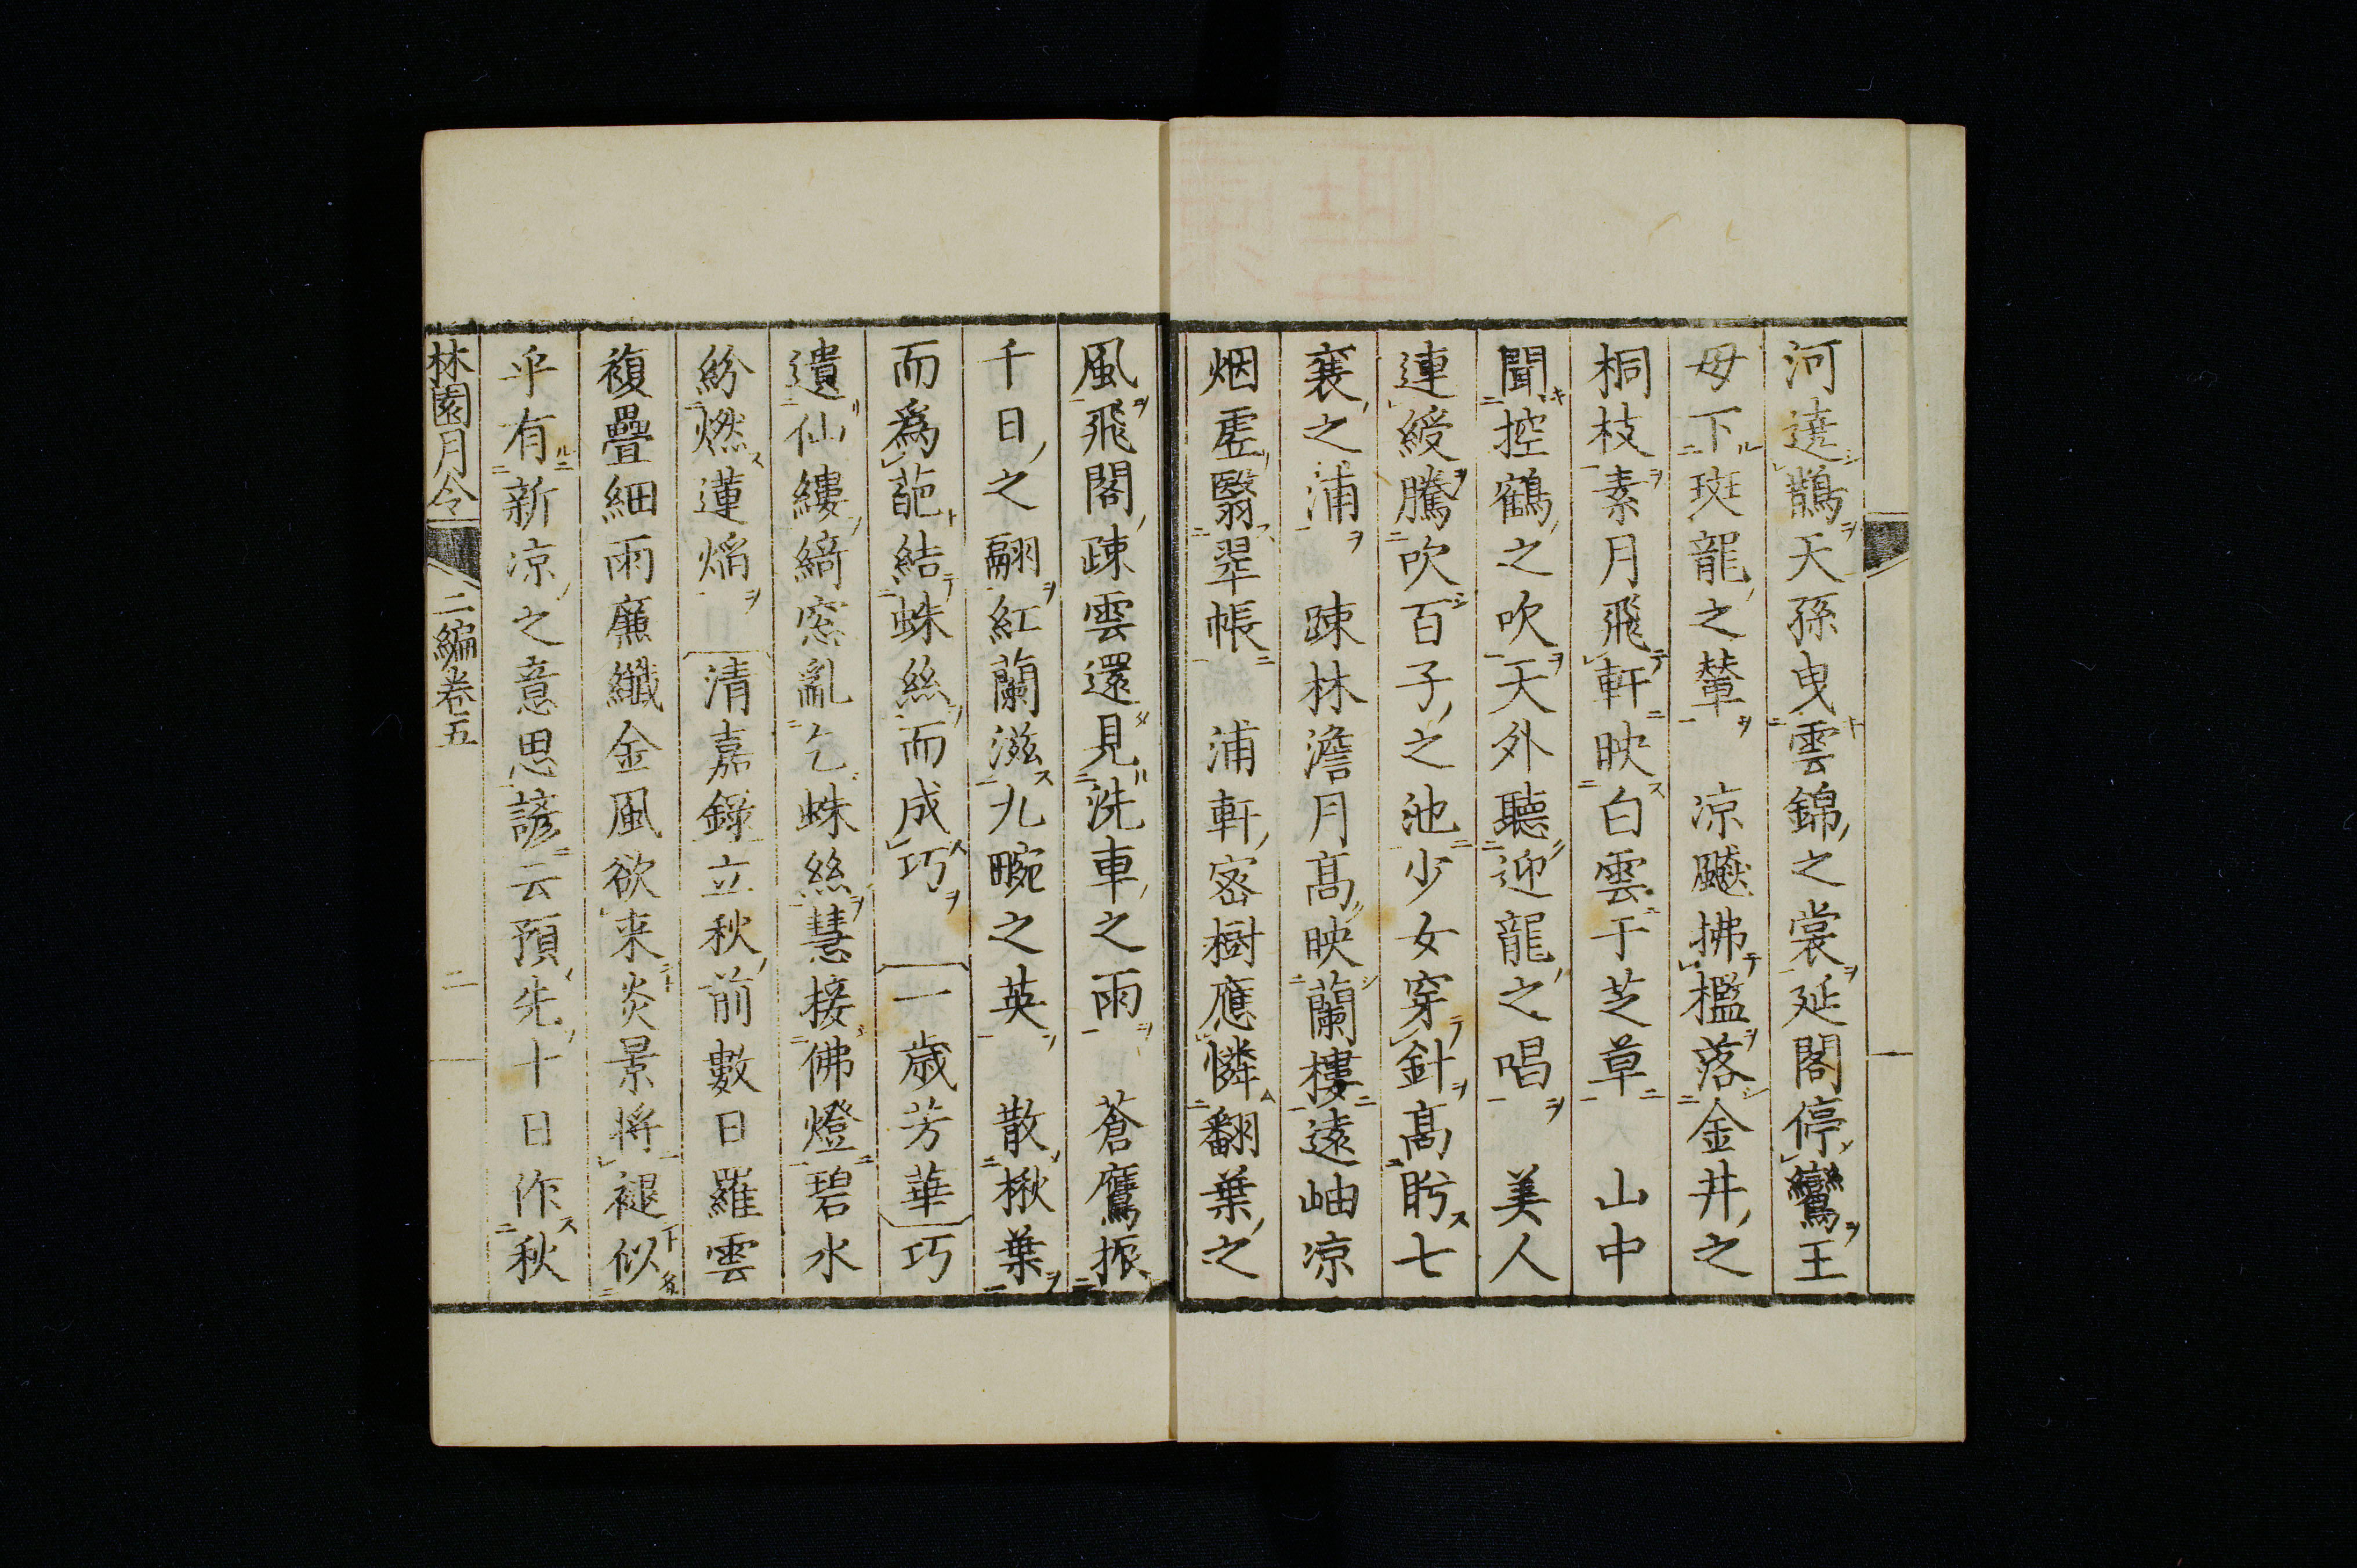 河遶鵲天孫曳雲錦之裳延閣停鸞王
母下斑龍之輦　凉飈拂檻落金井之
桐枝素月飛軒映白雲于芝草　山中
聞控鶴之吹天外聽迎龍之唱　美人
連綬騰吹百子之池少女穿針高眝七
襄之浦　踈林澹月高映蘭樓遠岫凉
烟虛翳翠帳　浦軒密樹應憐翻葉之
風飛閣疎雲還見洗車之雨　蒼鷹振
千日之翮紅蘭滋九畹之英　散楸葉
而爲葩結蛛絲而成巧　一歳芳華　巧
遺仙縷綺窓亂乞蛛絲慧接佛燈碧水
紛燃蓮焰　清嘉錄立秋前數日羅雲
複疊細雨廉纖金風欲来炎景将褪似
乎有新凉之意思諺云預先十日作秋
林園月令　二編卷五　二